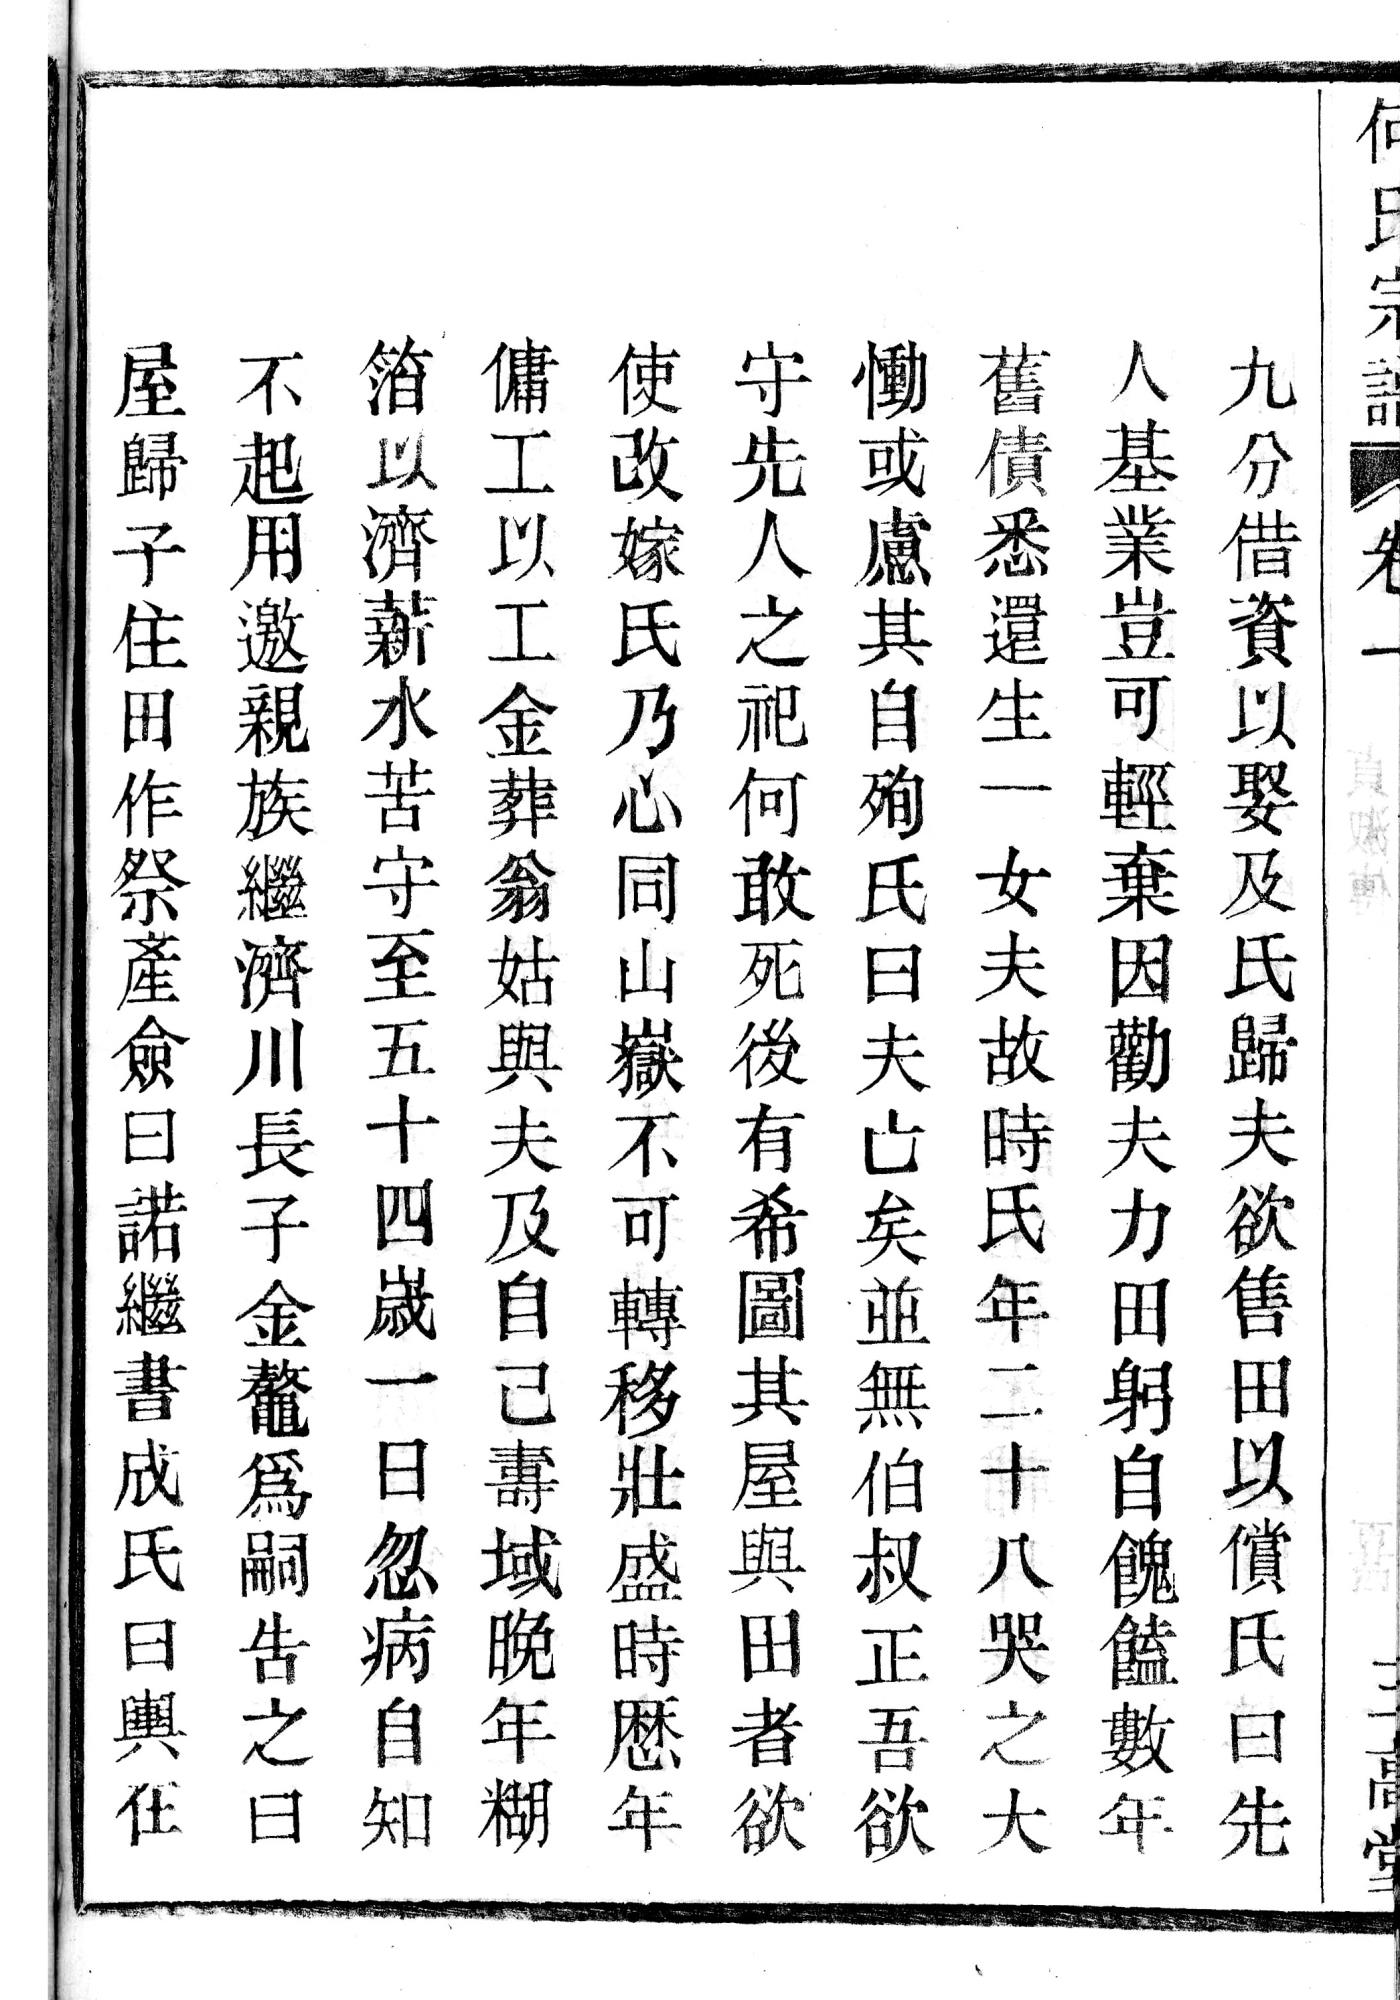 何氏宗譜
卷一
九分借資以娶及氏歸夫欲售田以償氏曰先
人基業豈可輕棄因勸夫力田躬自餽饁數年
舊債悉還生一女夫故時氏年二十八哭之大
慟或慮其自殉氏曰夫亡矣並無伯叔正吾欲
守先人之祀何敢死後有希圖其屋與田者欲
使改嫁氏乃心同山嶽不可轉移壯盛時歷年
傭工以工金葬翁姑與夫及自己壽域晚年糊
箔以濟薪水苦守至五十四歲一日忽病自知
不起用邀親族繼濟川長子金鼇爲嗣告之曰
屋歸子住田作祭產僉曰諾繼書成氏曰輿任